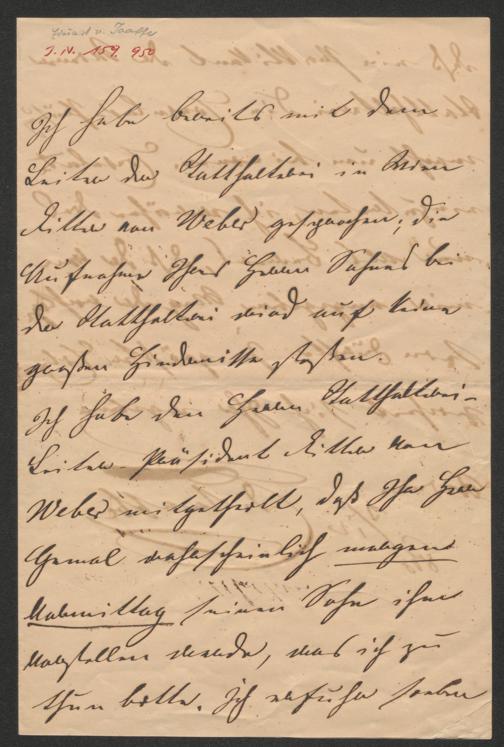 Eduard v. Taaffe
J.N. 159.950
Ich habe bereits mit dem
Leiter der Statthalterei in Wien
Ritter von Weber gesprochen; die
Aufnahme Ihres Herrn Sohnes bei
der Statthalterei wird auf keine
großen Hindernisse stoßen.
Ich habe dem Herrn Statthalterei-
Leiter-Präsident Ritter von
Weber mitgetheilt, daß Ihr Herr
Gemal wahrscheinlich morgen
Vormittag seinen Sohn ihm
vorstellen werde, was ich zu
thun bitte. Ich erfuhr soeben